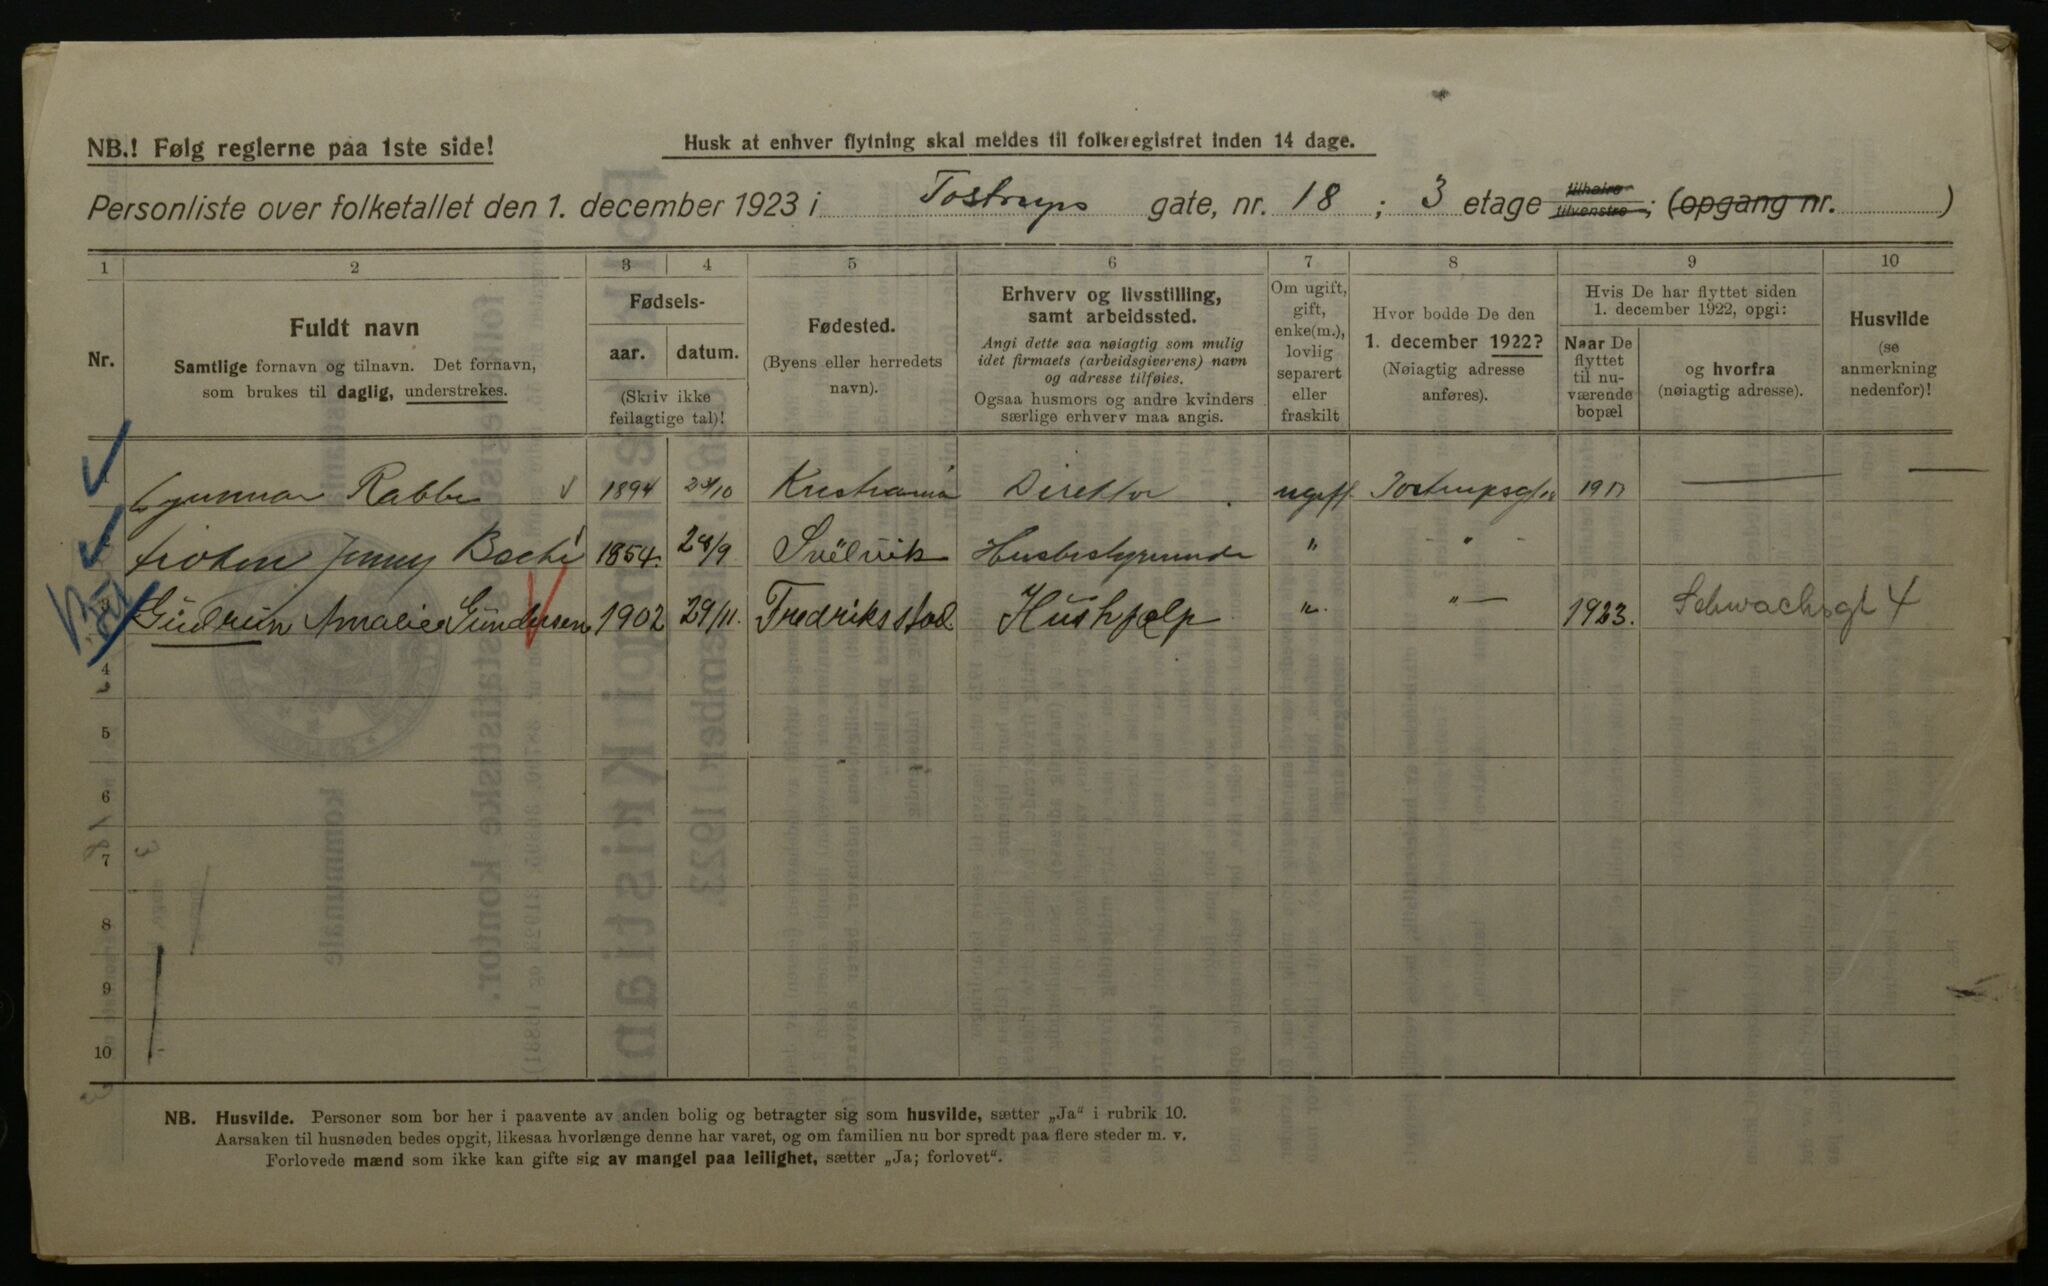 NB.! Følg reglerne paa 1ste side!
Husk at enhver flytning skal meldes til folkeregistret inden 14 dage.
Personliste over folketallet den 1. december 1923 i Tostrups gate, nr. 18 ; 3 etage tilhøire tilvenstre ; (opgang nr. )
1 2 3 4 5 6 7 8 9 10
Nr.
Fuldt navn
Samtlige fornavn og tilnavn. Det fornavn,
som brukes til daglig, understrekes.
Fødsels-
aar. datum.
(Skriv ikke
feilagtige tal)!
Fødested.
(Byens eller herredets
navn).
Erhverv og livsstilling,
samt arbeidssted.
Angi dette saa nøiagtig som mulig
idet firmaets (arbeidsgiverens) navn
og adresse tilføies.
Ogsaa husmors og andre kvinders
særlige erhverv maa angis.
Om ugift,
gift,
enke(m.),
lovlig
separert
eller
fraskilt
Hvor bodde De den
1. december 1922?
(Nøiagtig adresse
anføres).
Hvis De har flyttet siden
1. december 1922, opgi:
Naar De
flyttet
til nu-
værende
bopæl
og hvorfra
(nøiagtig adresse).
Husvilde
(se
anmerkning
nedenfor)!
Gunnar Rabbe 1894 Kristiania Direktor ugift Tostrupsgt 18 —
frøken Jenny Bache 1854 28/9 Svelvik Husbestyrerinde " "
3 Gudrun Amalie Gundersen 1902 29/11. Fredriksstad Hushjælp ". " — 1923. Schwachsgt 4
4
5
6
7
8
9
10
NB. Husvilde. Personer som bor her i paavente av anden bolig og betragter sig som husvilde, sætter „Ja" i rubrik 10.
Aarsaken til husnøden bedes opgit, likesaa hvorlænge denne har varet, og om familien nu bor spredt paa flere steder m. v.
Forlovede mænd som ikke kan gifte sig av mangel paa leilighet, sætter „Ja; forlovet".